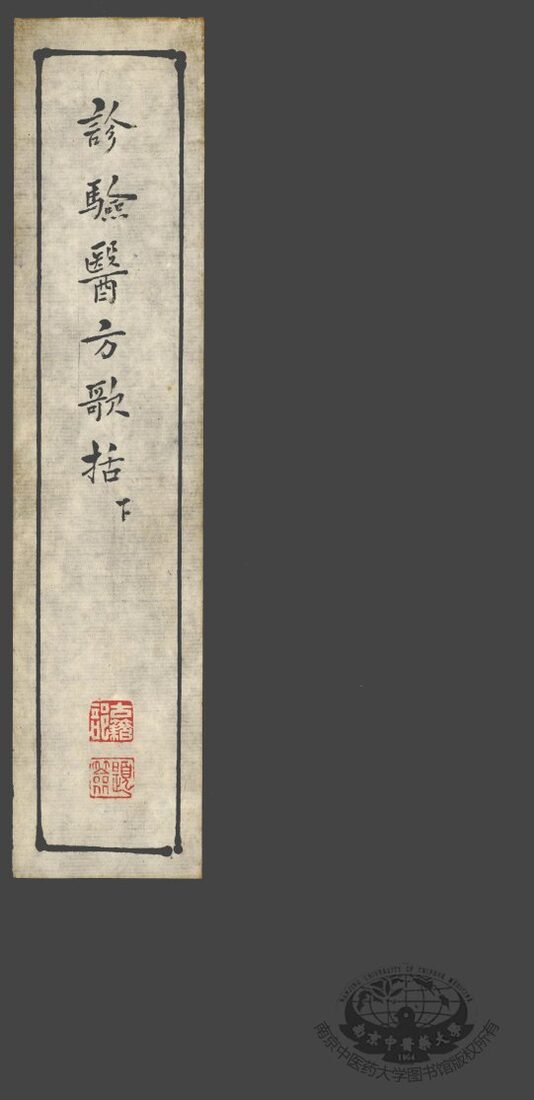 診驗醫方歌括下
古籍部
題簽
NANJING UNIVERSITY OF CHINESE MEDICINE
南京中醫藥大學
1954
南京中医药大学图书馆版权所有